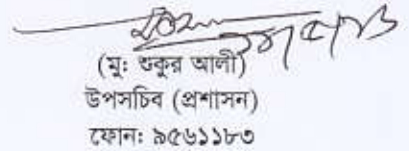 (মু: শুকুর আলী)
উপসচিব (প্রশাসন)
ফোন: ৯৫৬১১৮৩